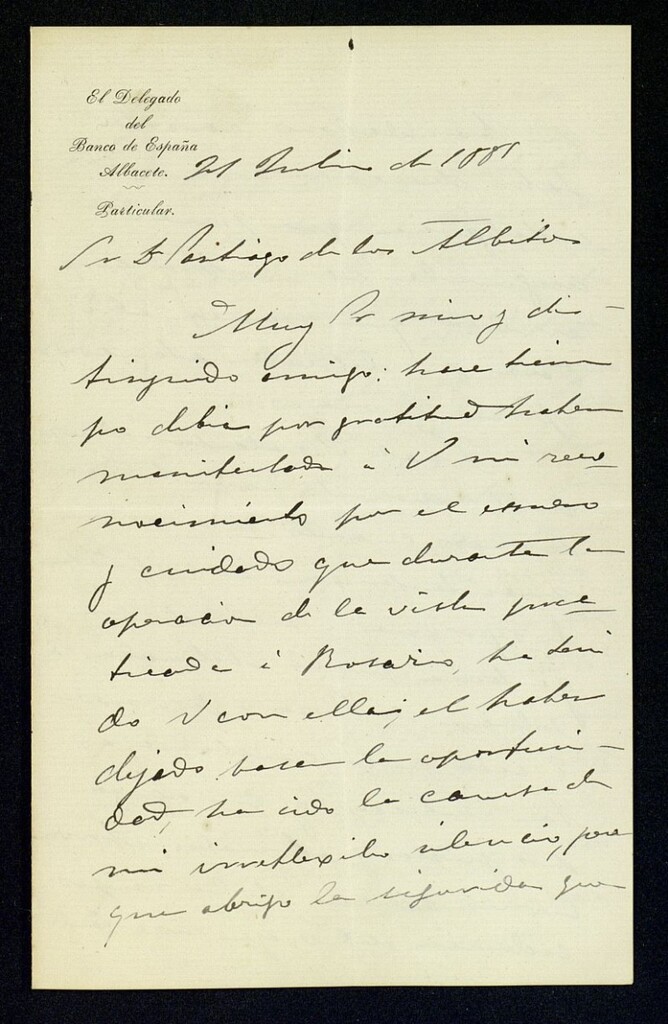 El Delegado
del
Banco de España
Albacete.
Particular.
21 Julio de 1881
Sr D Santiago de los Albitos
Muy Sr mio y dis-
tinguido amigo: hace tiem
po debia por gratitud haber
manifestado à V mi reco-
nocimiento por el esmero
y cuidado que durante la
operacion de la vista prac-
ticada à Rosario, ha teni
do V con ella; el haber
dejado pasar la oportuni-
dad, ha sido la causa de
mi irreflexibo silencio, por
que abrigo la seguridad que